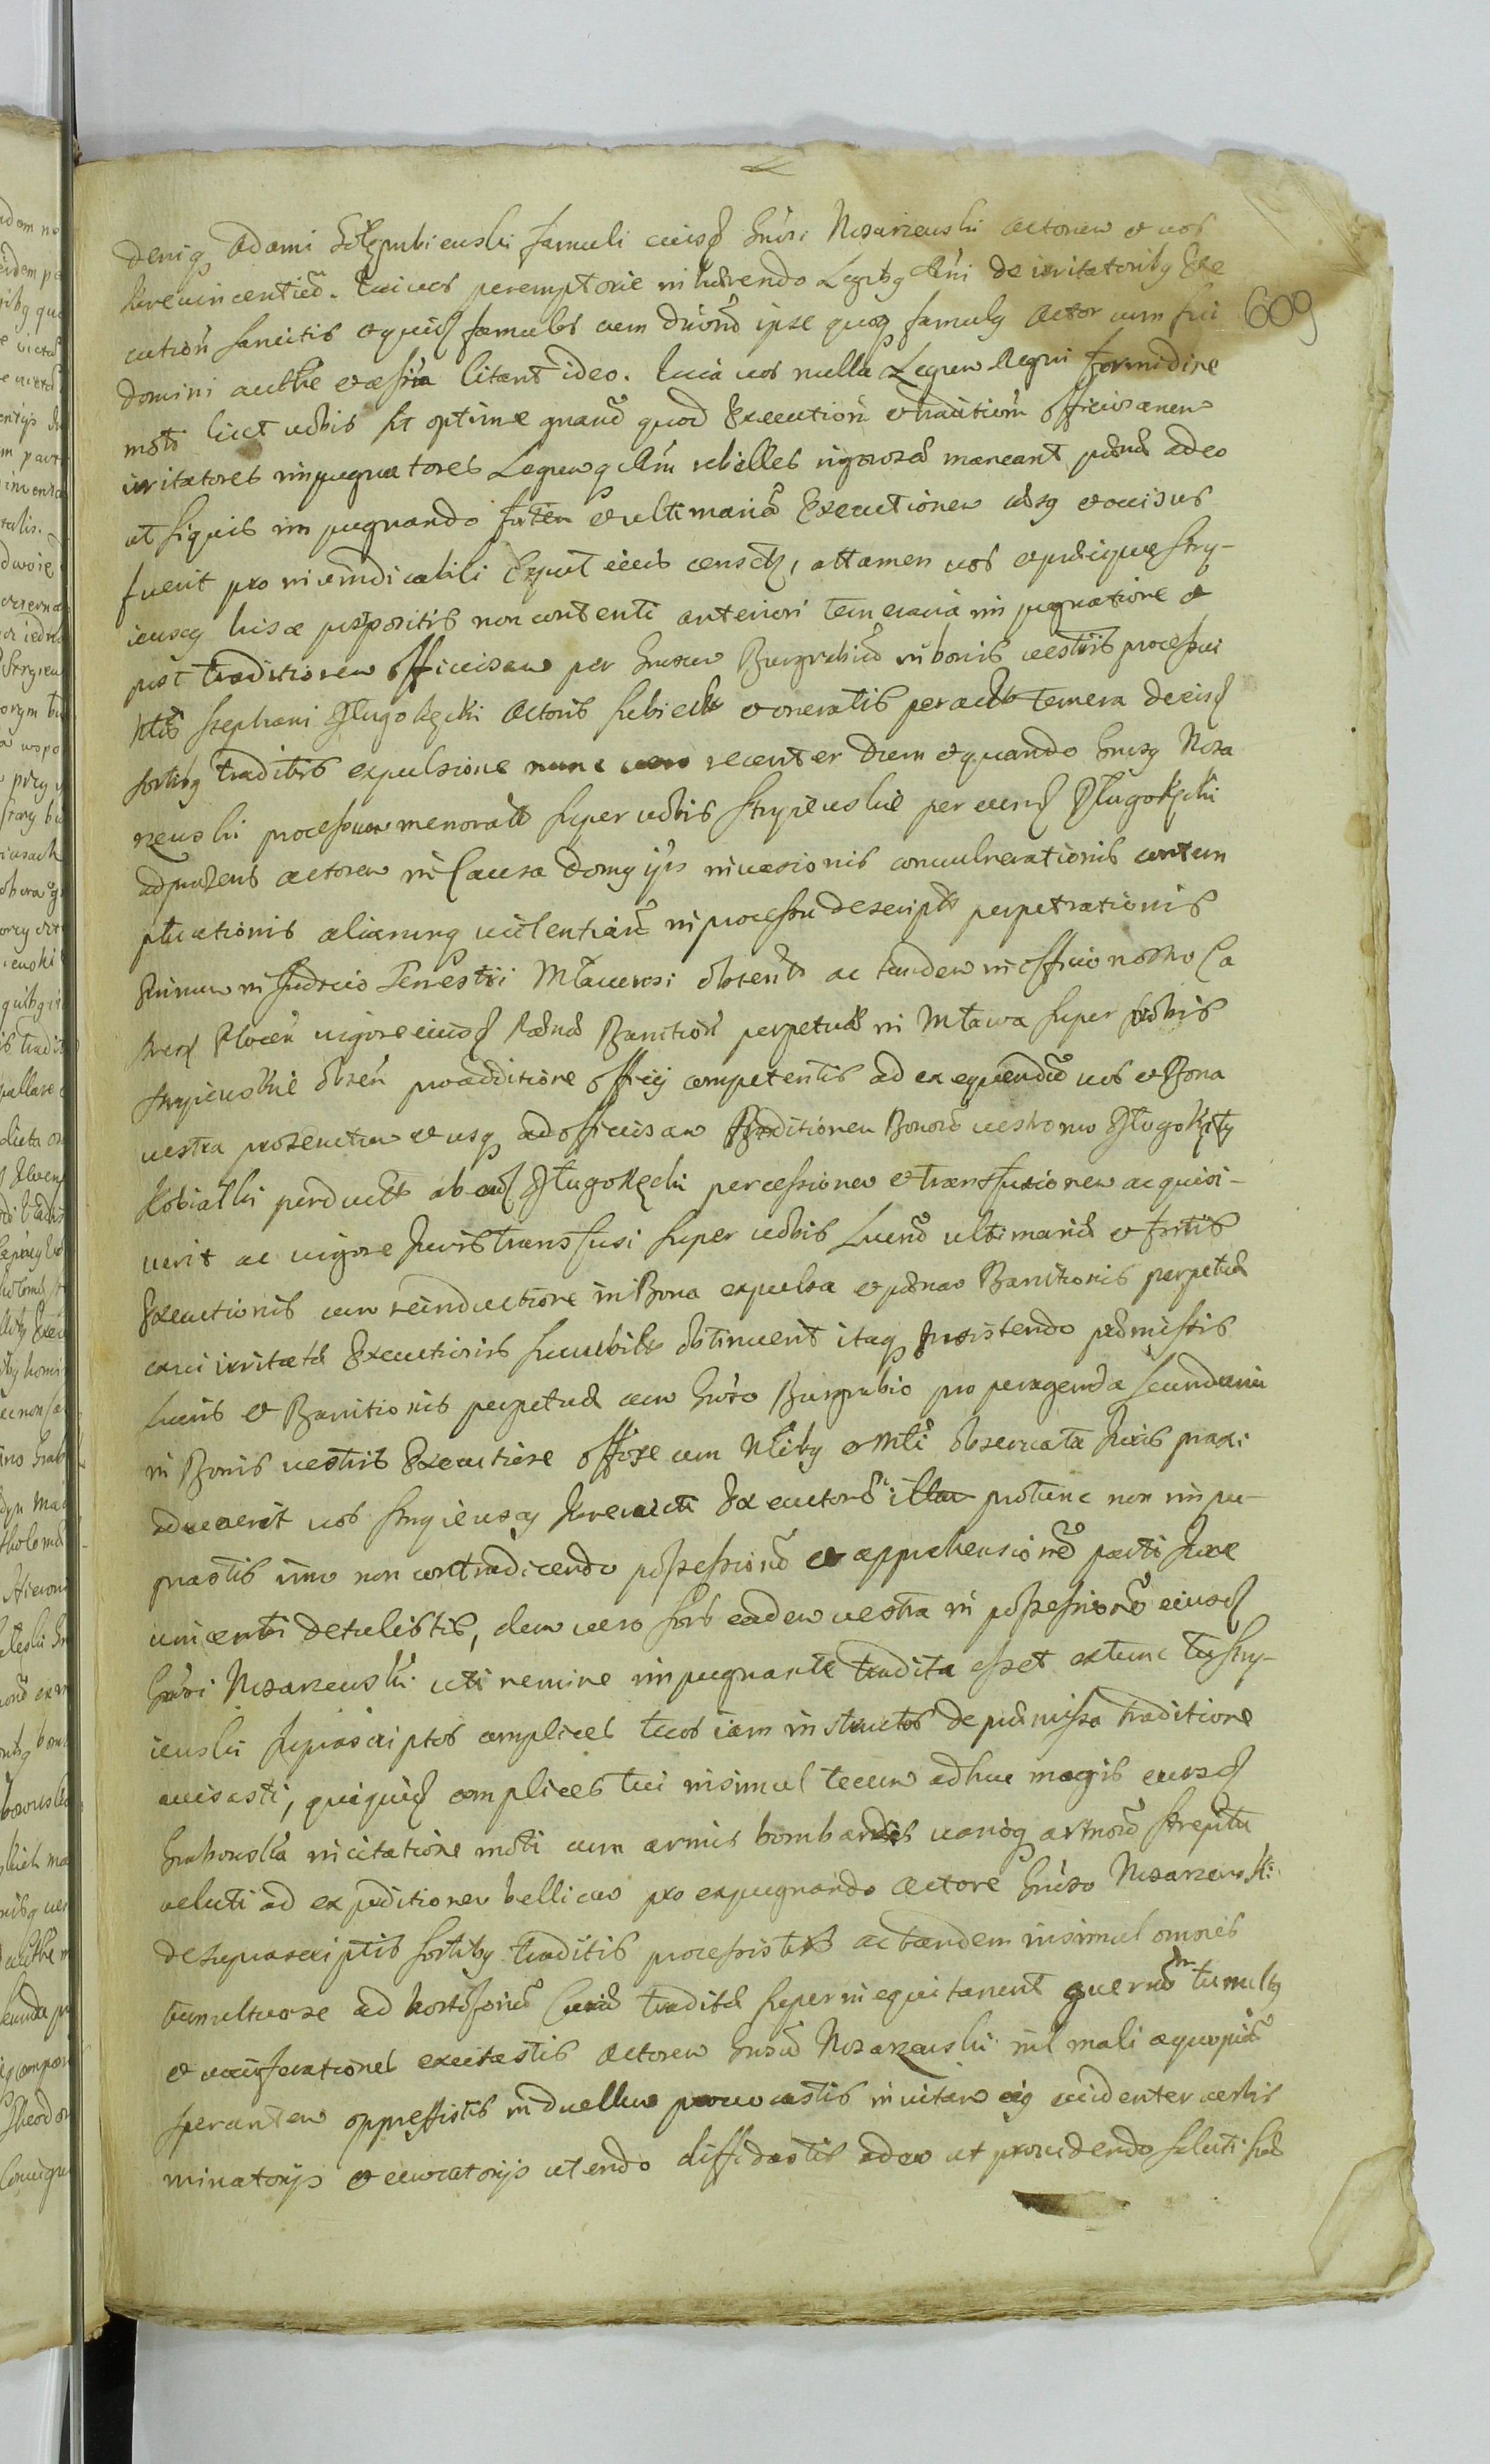 deniq Adami famuli eiusd Gnrsi Nosarzewski Actorem et vos
Jurevincentium. Qui vos peremptorie inhærendo Legibq Rni de irritatoribq Exe
cution sancitis equid famulos cum ipse quoq famulq Actor cum sui 609
Domini authte et assña citant ideo. Quia vos nulla Legum Regni formidine
moti licet vobis sit optime gnarum quod Execution et tradition officiosarum
irritatores impugnatores Legumq Rni rebelles rigorosæ maneant pænæ adeo
ut siquis impugnando fortem et ultimariam Executionem læsq et occisus
fuerit pro invindicabili caput eius censetr, attamen vos Stry-
iewscy hisce præpositis non contenti anteriori temeraria impugnatione et
post traditionem officiosam per Gnrosum Burgrabium in bonis vestris processui
Stephani Długokęcki Actoris subiectis et oneratis peracta temera de eisd
sortibq traditis expulsione nunc vero recenter dum et quando Gnrsq Nosa
rzewski processum memoratum super vobis Stryiewskie per eund Długokęcki
adpræsens actorem in Causa Domq ipsius invasionis convulnerationis contem
ptuationis aliarumq violentiarum in processu descriptis perpetrationis
primum in Judicio Terrestri Mlavensi obtento ac tandem in officio nostro Ca
stren Plocen vigore eiusd pænæ Banition perpetuæ in Mława super vobis
Stryiewskie obten pro additione officij competentis ad exequendum vos et Bona
vestra prosecutum et usq ad officiosam Traditionem Bonorum vestrorum Długokęty
Kobiałki perductum ab eod Długokęcki per cessionem et transfusionem acquisi-
verit ac vigore Juris transfusi super vobis Lucrum ultimariæ et fortis
Executionis cum reinductione in Bona expulsa et pænas Banitionis perpetuæ
irritatæ Executionis obtinuerit itaq Insistendo præmissis
Lucris et Banitionis perpetuæ cum Gnrso Burgrabio pro peragenda secundaria
in Bonis vestris Executione offose cum Nlibq et Mtli observata Juris praxi
advenerit vos Stryiewscy Jurevicti Executorem illum protunc non impu-
gnastis imo non contradicendo possessionem et apprehensionem parti Jure
vincenti detulistis, dum vero sors eadem vestra in possessionem eiusd
Gnrsi Nosarzewski uti nemine impugnante tradita esset extunc tu Stry-
iewski suprascriptos complices tuos iam instructos de præmissa traditione
avisasti, quiquid complices tui insimul tecum adhuc magis eiusd
Grabowska incitatione moti cum armis bombardis varioq armorum strepitu
veluti ad expeditionem bellicam pro expugnando Actore Gnrso Nosarzewski
de suprascriptis sortibq traditis processistis ac tandem insimul omnes
tumultuose ad hostiforium Curiæ traditæ superinequitarunt tumultq
et vociferationes excitastis Actorem Gnrsum Nosarzewski nil mali a quopiam
sperantem oppressistis in duellum provocastis in vitam eiq evidenter verbis
minatorijs et evocatorijs utendo diffidastis adeo ut providendo saluti suæ